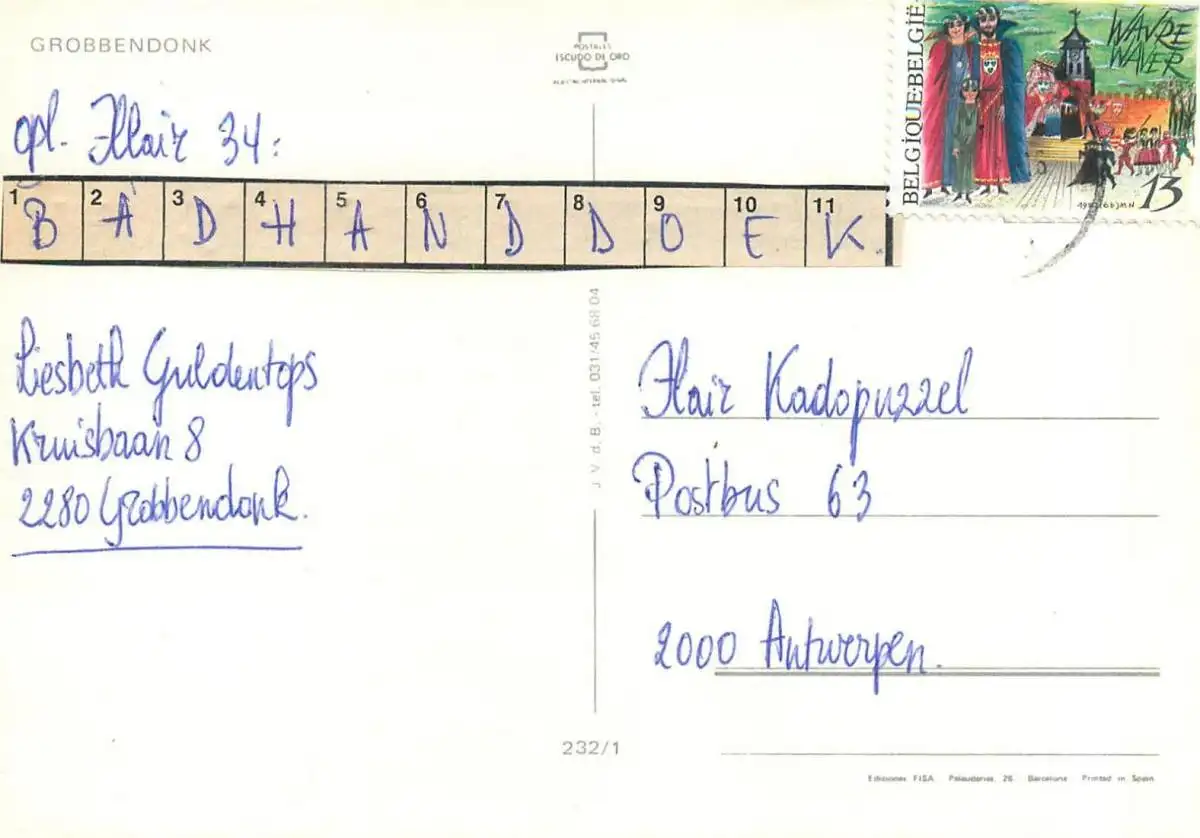 GROBBENDONK
POSTALES
ESCUDO DE ORO
BELGIQUE-BELGIË
WAVRE
WAVER
13
opl. Flair 34:
1 2 3 4 5 6 7 8 9 10 11
B A D H A N D D O E K.
J. V. d. B. - tel. 031/45 68 04
Liesbeth Guldentops
Kruisbaan 8
2280 Grobbendonk.
Flair Kadopuzzel
Postbus 63
2000 Antwerpen.
232/1
Ediciones FISA Palaudarias, 26 Barcelona Printed in Spain